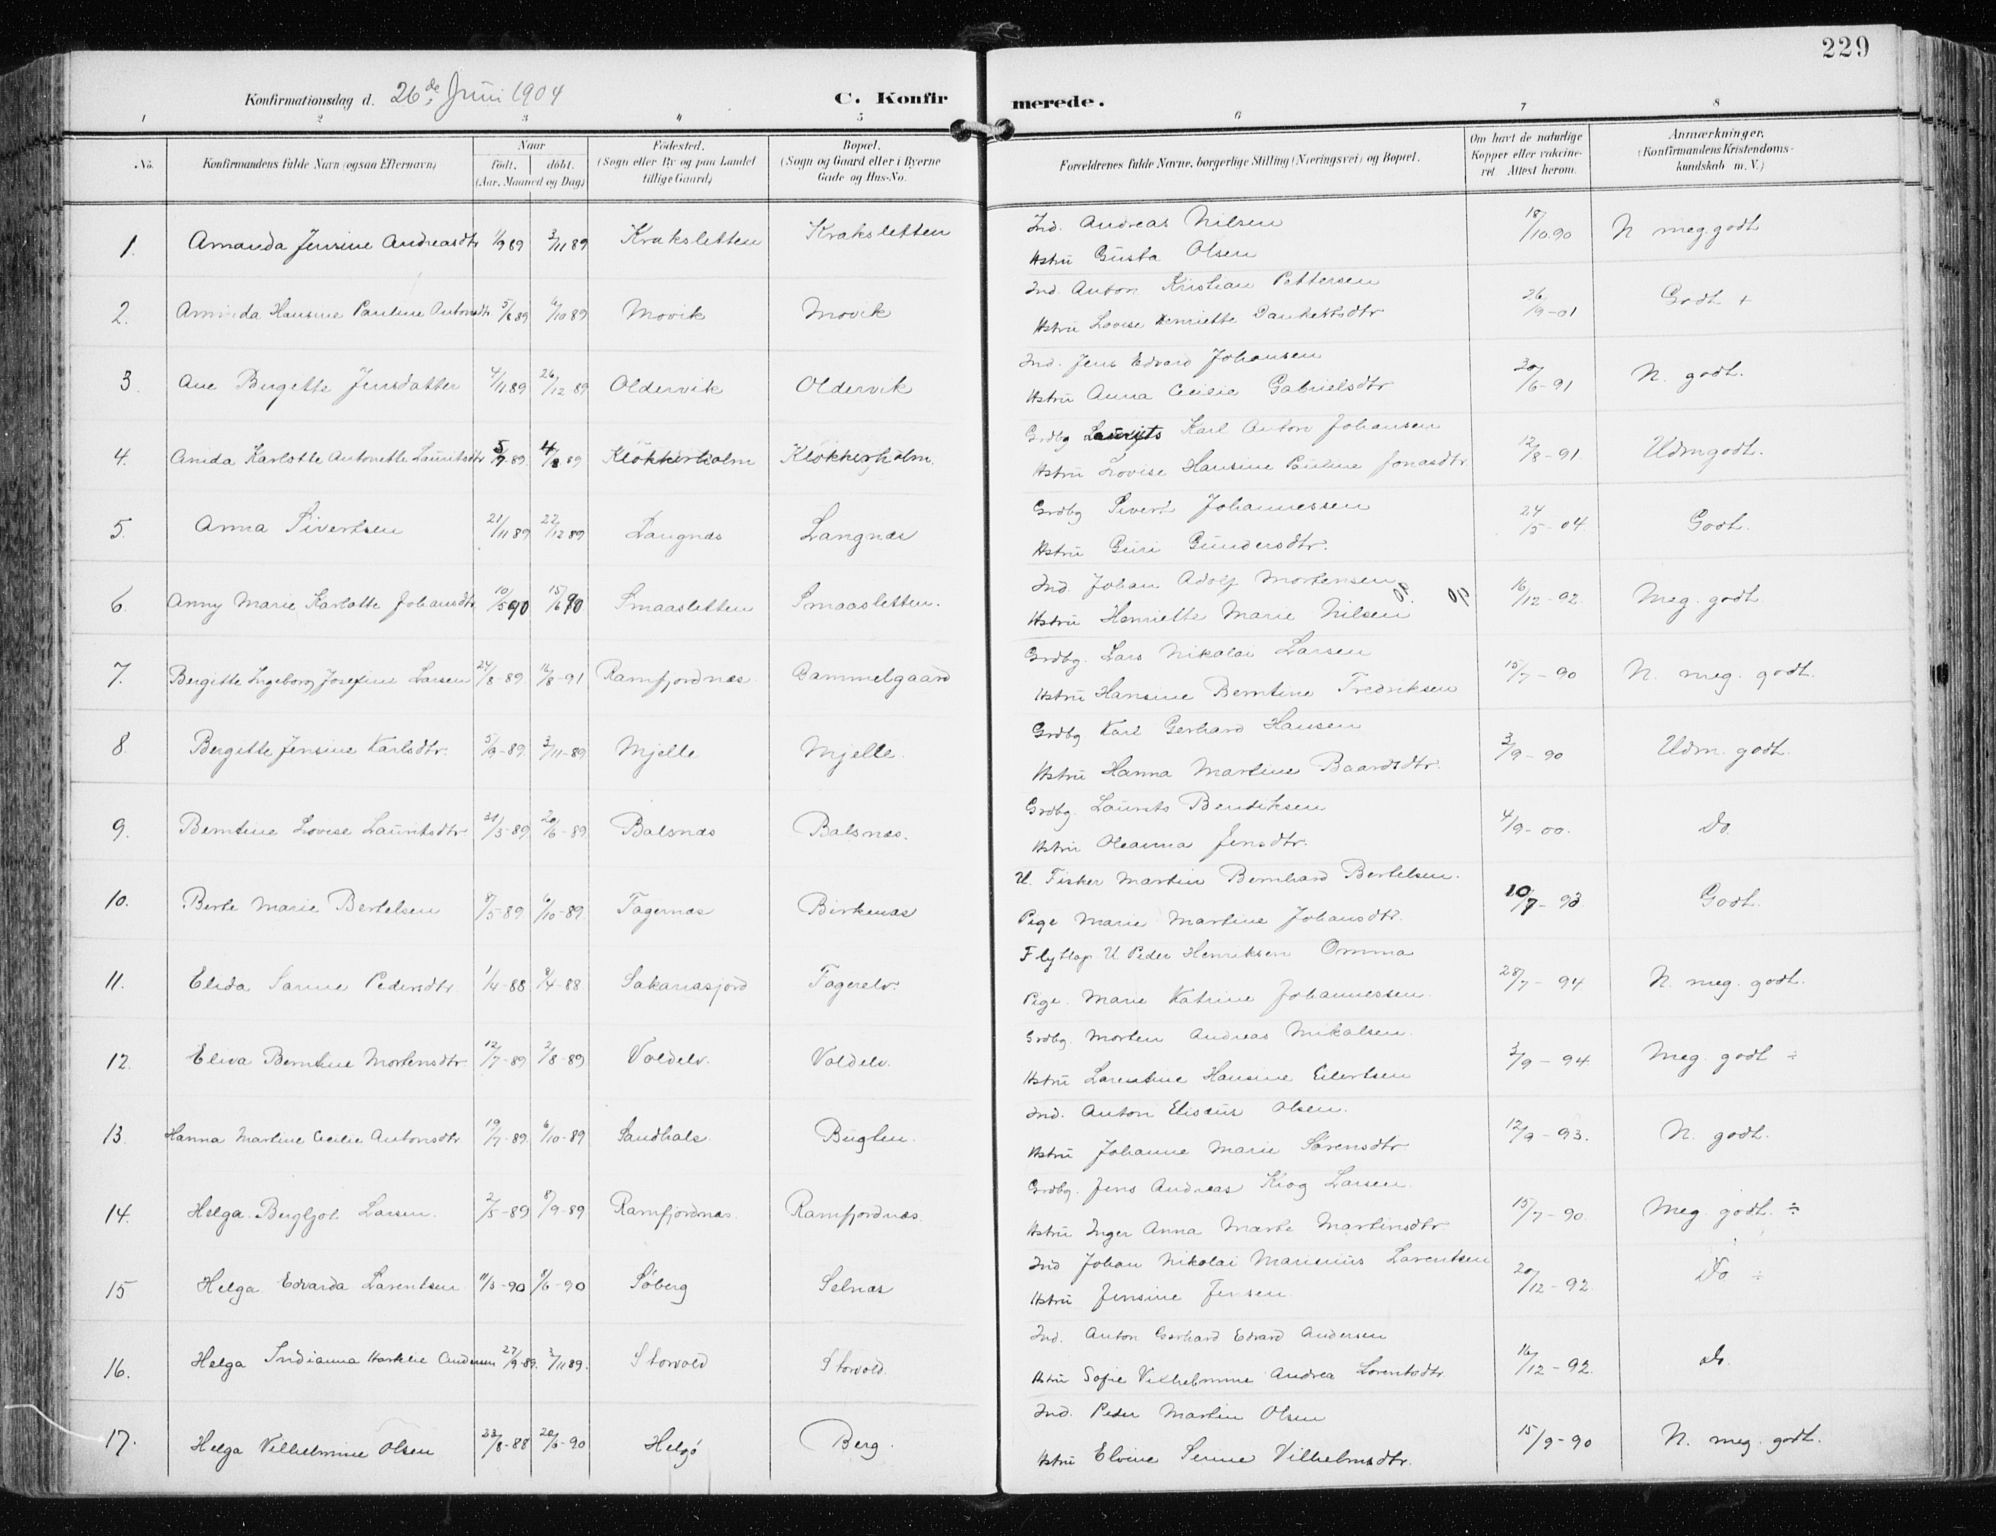 229
Konfirmationsdag d. 26de Juni 1904
C. Konfirmerede.
1 2 3 4 5 6 7 8
No. Konfirmandens fulde Navn (ogsaa Efternavn) Naar født, døbt. (Aar, Maaned og Dag) Fødested. (Sogn eller By og paa Landet tillige Gaard) Bopæl. (Sogn og Gaard eller i Byerne Gade og Hus-No. Forældrenes fulde Navne, borgerlige Stilling (Næringsvei) og Bopæl. Om havt de naturlige Kopper eller vakcineret Attest herom. Anmærkninger. (Konfirmandens Kristendomskundskab m. V.)
1. Amanda Jensine Andreasdtr 1/9 89 3/11 89 Kraksletten Kraksletten Ind. Andreas Nilsen 18/10.90 N meg godt
Hstru Gusta Olsen
2. Hansine Pauline Antonsdtr 5/8 89 6/10 89 Movik Movik Ind. Anton Kristian Pettersen 26/9-01 Godt +
Hstru Lovise Henriette Dankertsdtr
3. Ane Bergitte Jensdatter 4/11 89 26/12-89 Oldervik Oldervik Ind. Jens Edvard Johansen 30/6-91 N. godt.
Hstru Anna Cecilie Gabrielsdtr
4. Anida Karlotte Antonette Lauritsdtr 5/7-89 4/8 89 Kløkkerholm Kløkkerholm. Grdbg Laurits Karl Anton Johansen 12/8-91. Udm godt.
Hstru Lovise Hansine Pauline Jonasdtr
5. Anna Sivertsen 21/11 89 22/12 89 Langnæs Langnæs Grdbg Sivert Johannessen 24/5-04. Godt.
Hstru Guri Gundersdtr.
6. Anny Marie Karlotte Johansdtr 10/5 90 15/6 90 Smaasletten Smaasletten. Ind. Johan Adolf Mortensen 16/12-92. Meg. godt.
Hstru Henriette Marie Nilsen
7. Bergitte Ingeborg Josefine Larsen 24/8-89. 16/8-91 Ramfjordnæs Gammelgaard Grdbg. Lars Nikolai Larsen 15/7-90 N. meg. godt.
Hstru Hansine Berntine Fredriksen
8. Bergitte Jensine Karlsdtr. 5/9-89. 3/11-89 Mjelle Mjelle. Grdbg Karl Gerhard Hansen 3/9-90 Udm. godt.
Hstru Hanna Martine Baardsdtr.
9. Berntine Lovise Lauritsdtr 31/3-89 20/6-89 Balsnæs Balsnæs. Grdbg. Laurits Bendiksen 4/9-00. Do.
Hstru Oleanna Jensdtr.
10. Berte Marie Bertelsen 8/5-89 6/10-89. Tagernæs Birkenæs U. Fisker Martin Bernhard Bertelsen. 10/7-93 Godt.
Pige Marie Martine Johansdtr.
11. Elida Sanne Pedersdtr 1/4-88 9/4-88 Sakariasjord Tagerelv. Flytlap U Peder Henriksen Omma 28/7-94 N. meg. godt.
Pige. Marie Katrine Johannessen.
12. Eliva Berntine Mortensdtr. 12/7-89 2/8-89 Voldelv. Voldelv. Grdbg. Morten Andreas Mikalsen. 3/9-94. Meg. godt ÷
Hstru Larentine Hansine Eilertsen
13. Hanna Martine Cecilie Antonsdtr 19/7-89. 6/10-89 Sandhals Bugten. Ind. Anton Elisæus Olsen. 12/9-93. N. godt.
Hstru Johanne Marie Sørensdtr
14. Helga Bergljot Larsen. 2/5-89 8/9-89 Ramfjordnæs. Ramfjordnæs. Grdbg. Jens Andreas Krog Larsen. 15/7-90. Meg. godt. ÷
Hstru Inger Anna Marte Martinsdtr
15 Helga Edvarda Larentsen 11/3-90 8/6-90 Søberg Selnæs Ind Johan Nikolai Marenius Larentsen 20/12-92. Do ÷
Hstru Jensine Jensen
16. Helga Indianna Andersen 27/9-89. 3/11 89. Storvold Storvold. Ind. Anton Gerhard Edvard Andersen 16/12-92. Do.
Hstru Sofie Vilhelmine Andrea Lorentsdtr.
17. Helga Vilhelmine Olsen 23/8-88 20/6-90 Helgø Berg. Ind. Peder Martin Olsen 15/9-90 N. meg. godt.
Hstru Elvine Senne Vilhelmsdtr.